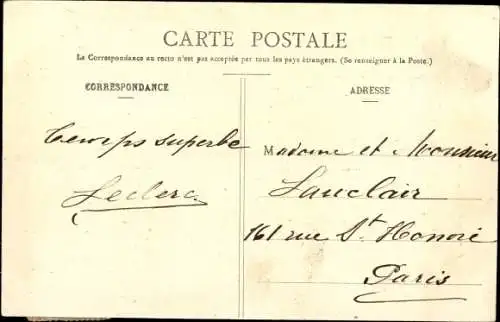 CARTE POSTALE
La Correspondance au recto n'est pas acceptée par tous les pays étrangers. (Se renseigner à la Poste.)
CORRESPONDANCE
ADRESSE
Temps superbe
Leclerc
Madame et Monsieur
Lauclair
161 rue St Honoré
Paris